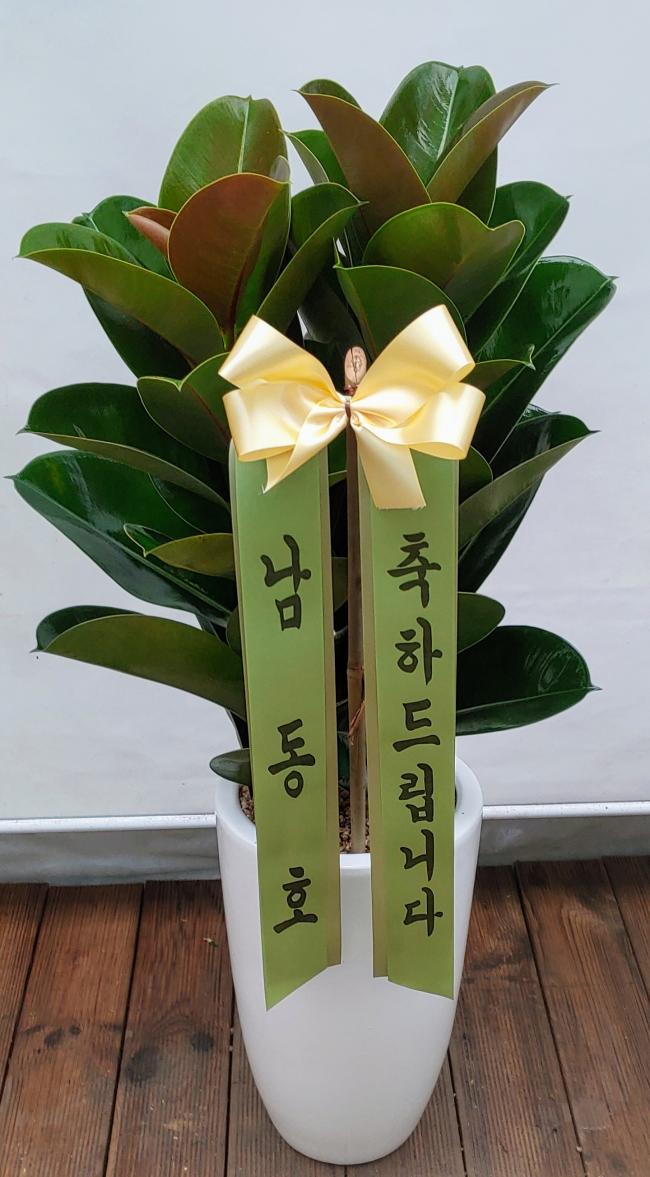 남동호
축하드립니다